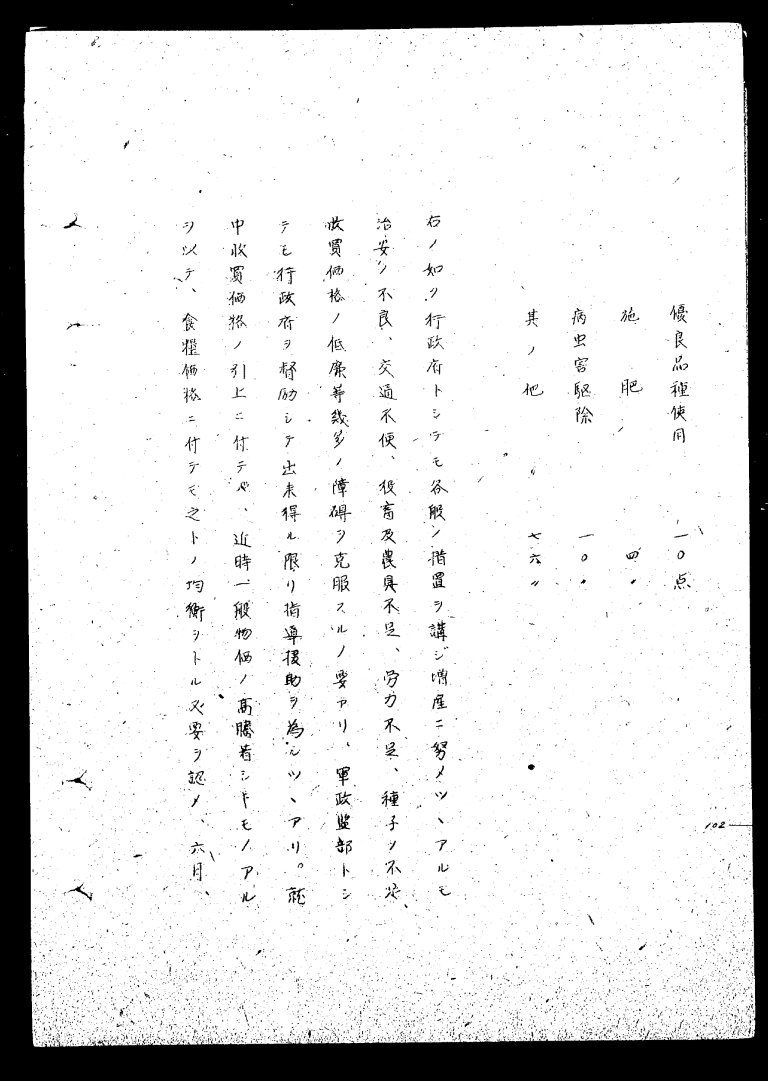 優良品種使用 一〇点
施肥 四〃
病虫害駆除 一〇〃
其ノ他 〃 七六〃
右ノ如ク行政府トシテモ各般ノ措置ヲ講ジ増産ニ努メツヽアルモ
治安ノ不良、交通不便、役畜及農具不足、労力不足、種子ノ不足、
收買価格ノ低廉等幾多ノ障碍ヲ克服スルノ要アリ、軍政監部トシ
テモ行政府ヲ督励シテ出来得ル限リ指導援助ヲ為シツヽアリ。就
中收買価格ノ引上ニ付テハ、近時一般物価ノ高騰著シキモノアル
ヲ以テ、食糧価格ニ付テモ之トノ均衡ヲトル必要ヲ認メ、六月、
102